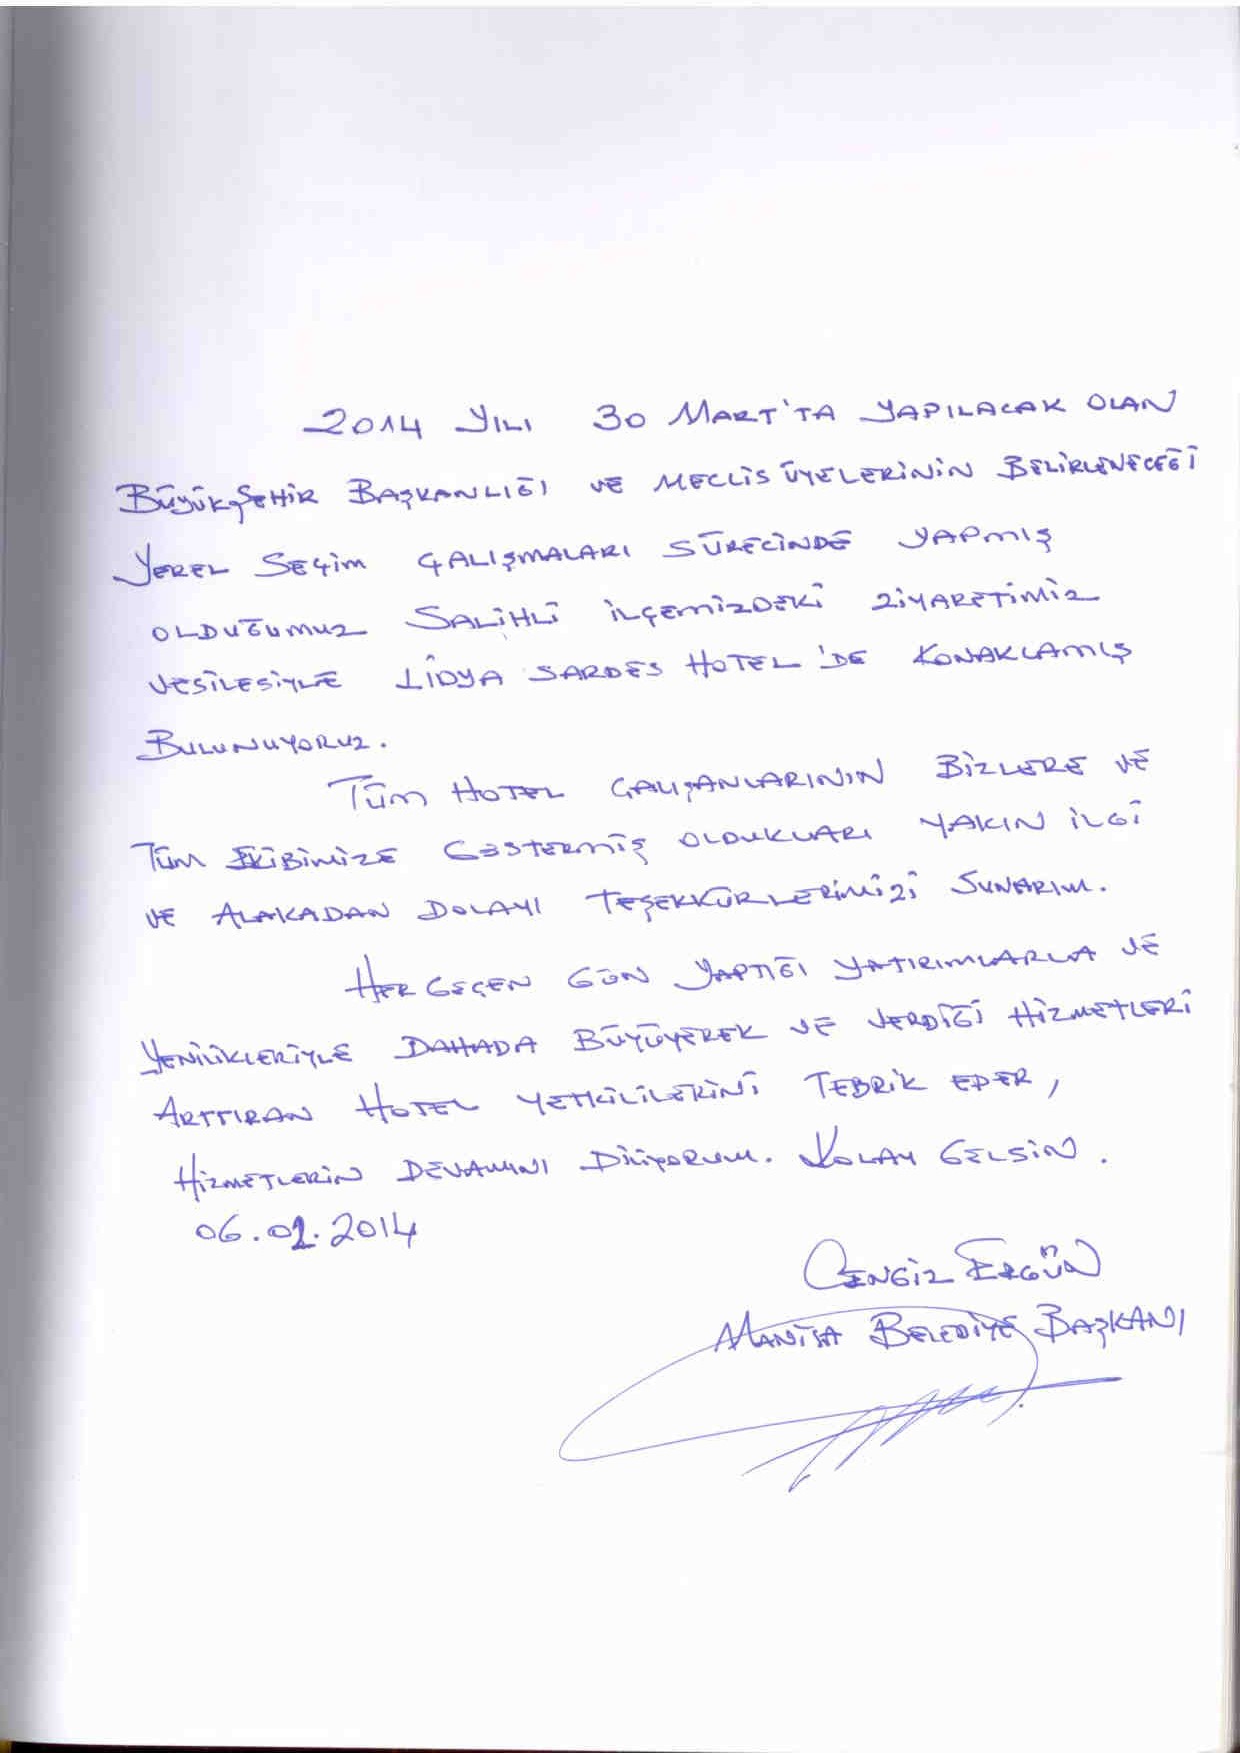 2014 YILI 30 MART'TA YAPILACAK OLAN
BÜYÜKŞEHİR BAŞKANLIĞI VE MECLİS ÜYELERİNİN BELİRLENECEĞİ
YEREL SEÇİM ÇALIŞMALARI SÜRECİNDE YAPMIŞ
OLDUĞUMUZ SALİHLİ İLÇEMİZDEKİ ZİYARETİMİZ
VESİLESİYLE LİDYA SARDES HOTEL'DE KONAKLAMIŞ
BULUNUYORUZ.
TÜM HOTEL ÇALIŞANLARININ BİZLERE VE
TÜM EKİBİMİZE GÖSTERMİŞ OLDUKLARI YAKIN İLGİ
VE ALAKADAN DOLAYI TEŞEKKÜRLERİMİZİ SUNARIM.
HER GEÇEN GÜN YAPTIĞI YATIRIMLARLA VE
YENİLİKLERİYLE DAHADA BÜYÜYEREK VE VERDİĞİ HİZMETLERİ
ARTTIRAN HOTEL YETKİLİLERİNİ TEBRİK EDER,
HİZMETLERİN DEVAMINI DİLİYORUM. KOLAY GELSİN.
06.02.2014
CENGİZ ERGÜN
MANİSA BELEDİYE BAŞKANI